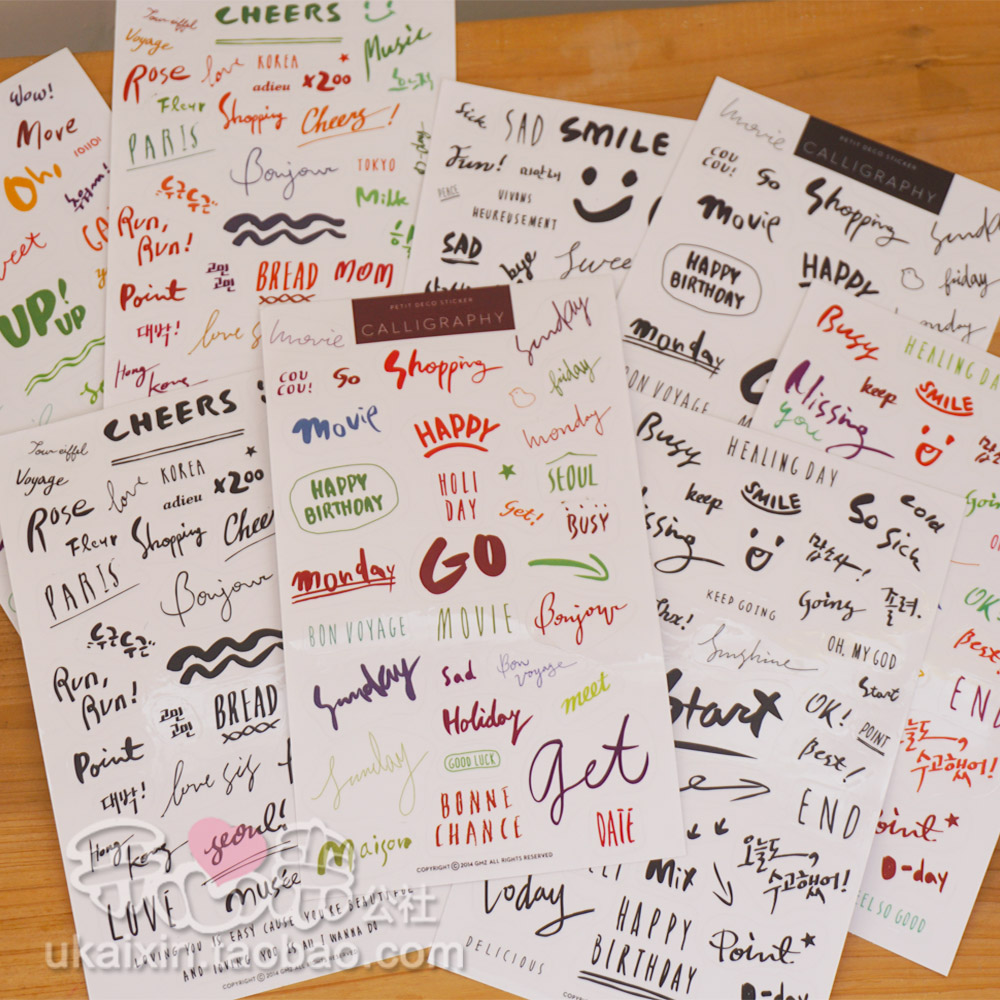 wow!
Move
101101
Oh!
UP!
UP
Tour eiffel
Voyage
CHEERS
Music
Rose
love
KOREA
adieu
x200
Fleur
Shopping
Cheers!
PARIS
Bonjour
TOKYO
D-day
Milk
두근두근
Run,
Run!
고민
고민
BREAD
MOM
Point
대박!
love
Hong
kong
Sick
SAD
SMILE
Fun!
PEACE
VIVONS
HEUREUSEMENT
SAD
bye
Sweet
movie
PETIT DECO STICKER
CALLIGRAPHY
COU
COU!
So
Shopping
Sunday
Movie
HAPPY
BIRTHDAY
HAPPY
friday
monday
monday
BON VOYAGE
Busy
HEALING DAY
Missing
you
keep
SMILE
OK!
Best!
END
오늘도
수고했어!
Point
D-day
FEEL SO GOOD
movie
PETIT DECO STICKER
CALLIGRAPHY
Sunday
COU
COU!
So
Shopping
friday
Movie
HAPPY
monday
HAPPY
BIRTHDAY
HOLI
DAY
SEOUL
Get!
BUSY
monday
GO
BON VOYAGE
MOVIE
Bonjour
Sunday
Sad
Bon
Voyage
meet
Holiday
Sunday
GOOD LUCK
get
BONNE
CHANCE
DATE
Maison
COPYRIGHT ⓒ 2014 GMZ ALL RIGHTS RESERVED
Tour eiffel
Voyage
CHEERS
Rose
love
KOREA
adieu
x200
Fleur
Shopping
Cheers
PARIS
Bonjour
두근두근
Run,
Run!
고민
고민
BREAD
Point
대박!
love sis
Hong
kong
seoul!
LOVE
musée
LOVING YOU IS EASY CAUSE YOU'RE BEAUTIFUL
AND LOVING YOU IS ALL I WANNA DO
Busy
HEALING DAY
keep
SMILE
So
Cold
Sick
Missing
감사!
KEEP GOING
Going
졸려.
Thx!
Sunshine
OH, MY GOD
Start
Start
OK!
POINT
Best!
END
오늘도
수고했어!
Mix
today
HAPPY
BIRTHDAY
Point.
DELICIOUS
D-day
公社
ukaixin.taobao.com